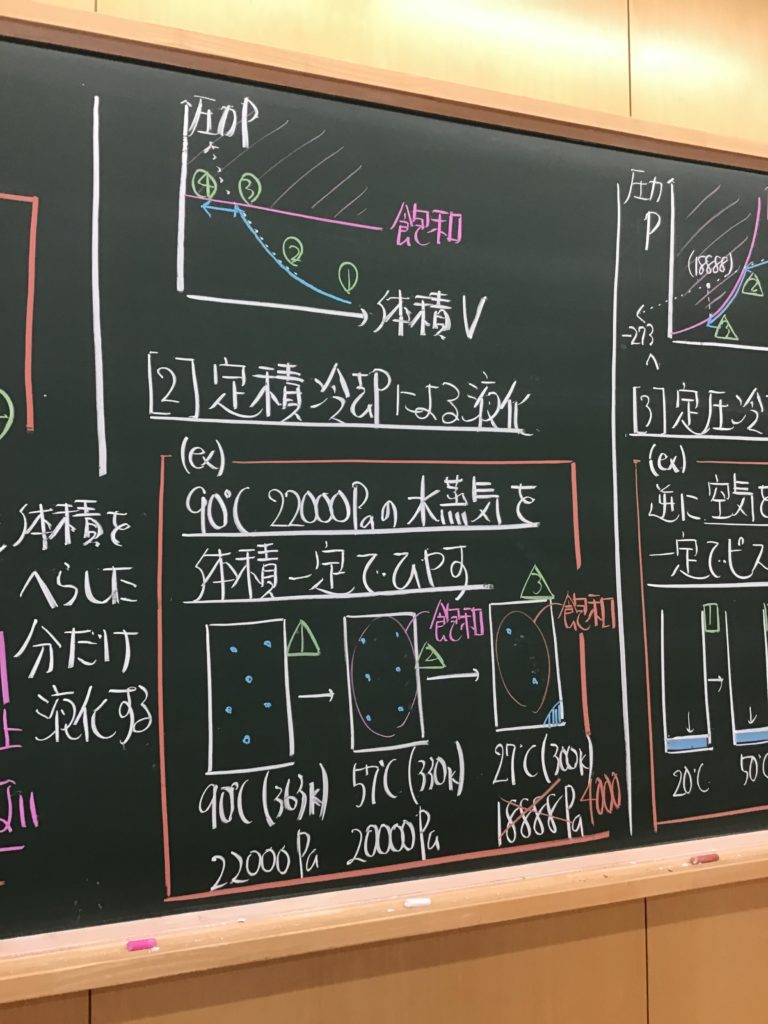 体積を
へらした
分だけ
液化する
圧力P
④ ③
飽和
②
①
体積V
[2]定積冷却による液化
(ex)
90℃ 22000Paの水蒸気を
体積一定でひやす
1
飽和
2
3
飽和
90℃(363K)
22000Pa
57℃(330K)
20000Pa
27℃(300K)
18888Pa 4000
圧力
P
(18888)
2
3
-273
へ
[3]定圧冷
(ex)
逆に空気を
一定でピス
1
20℃
50℃